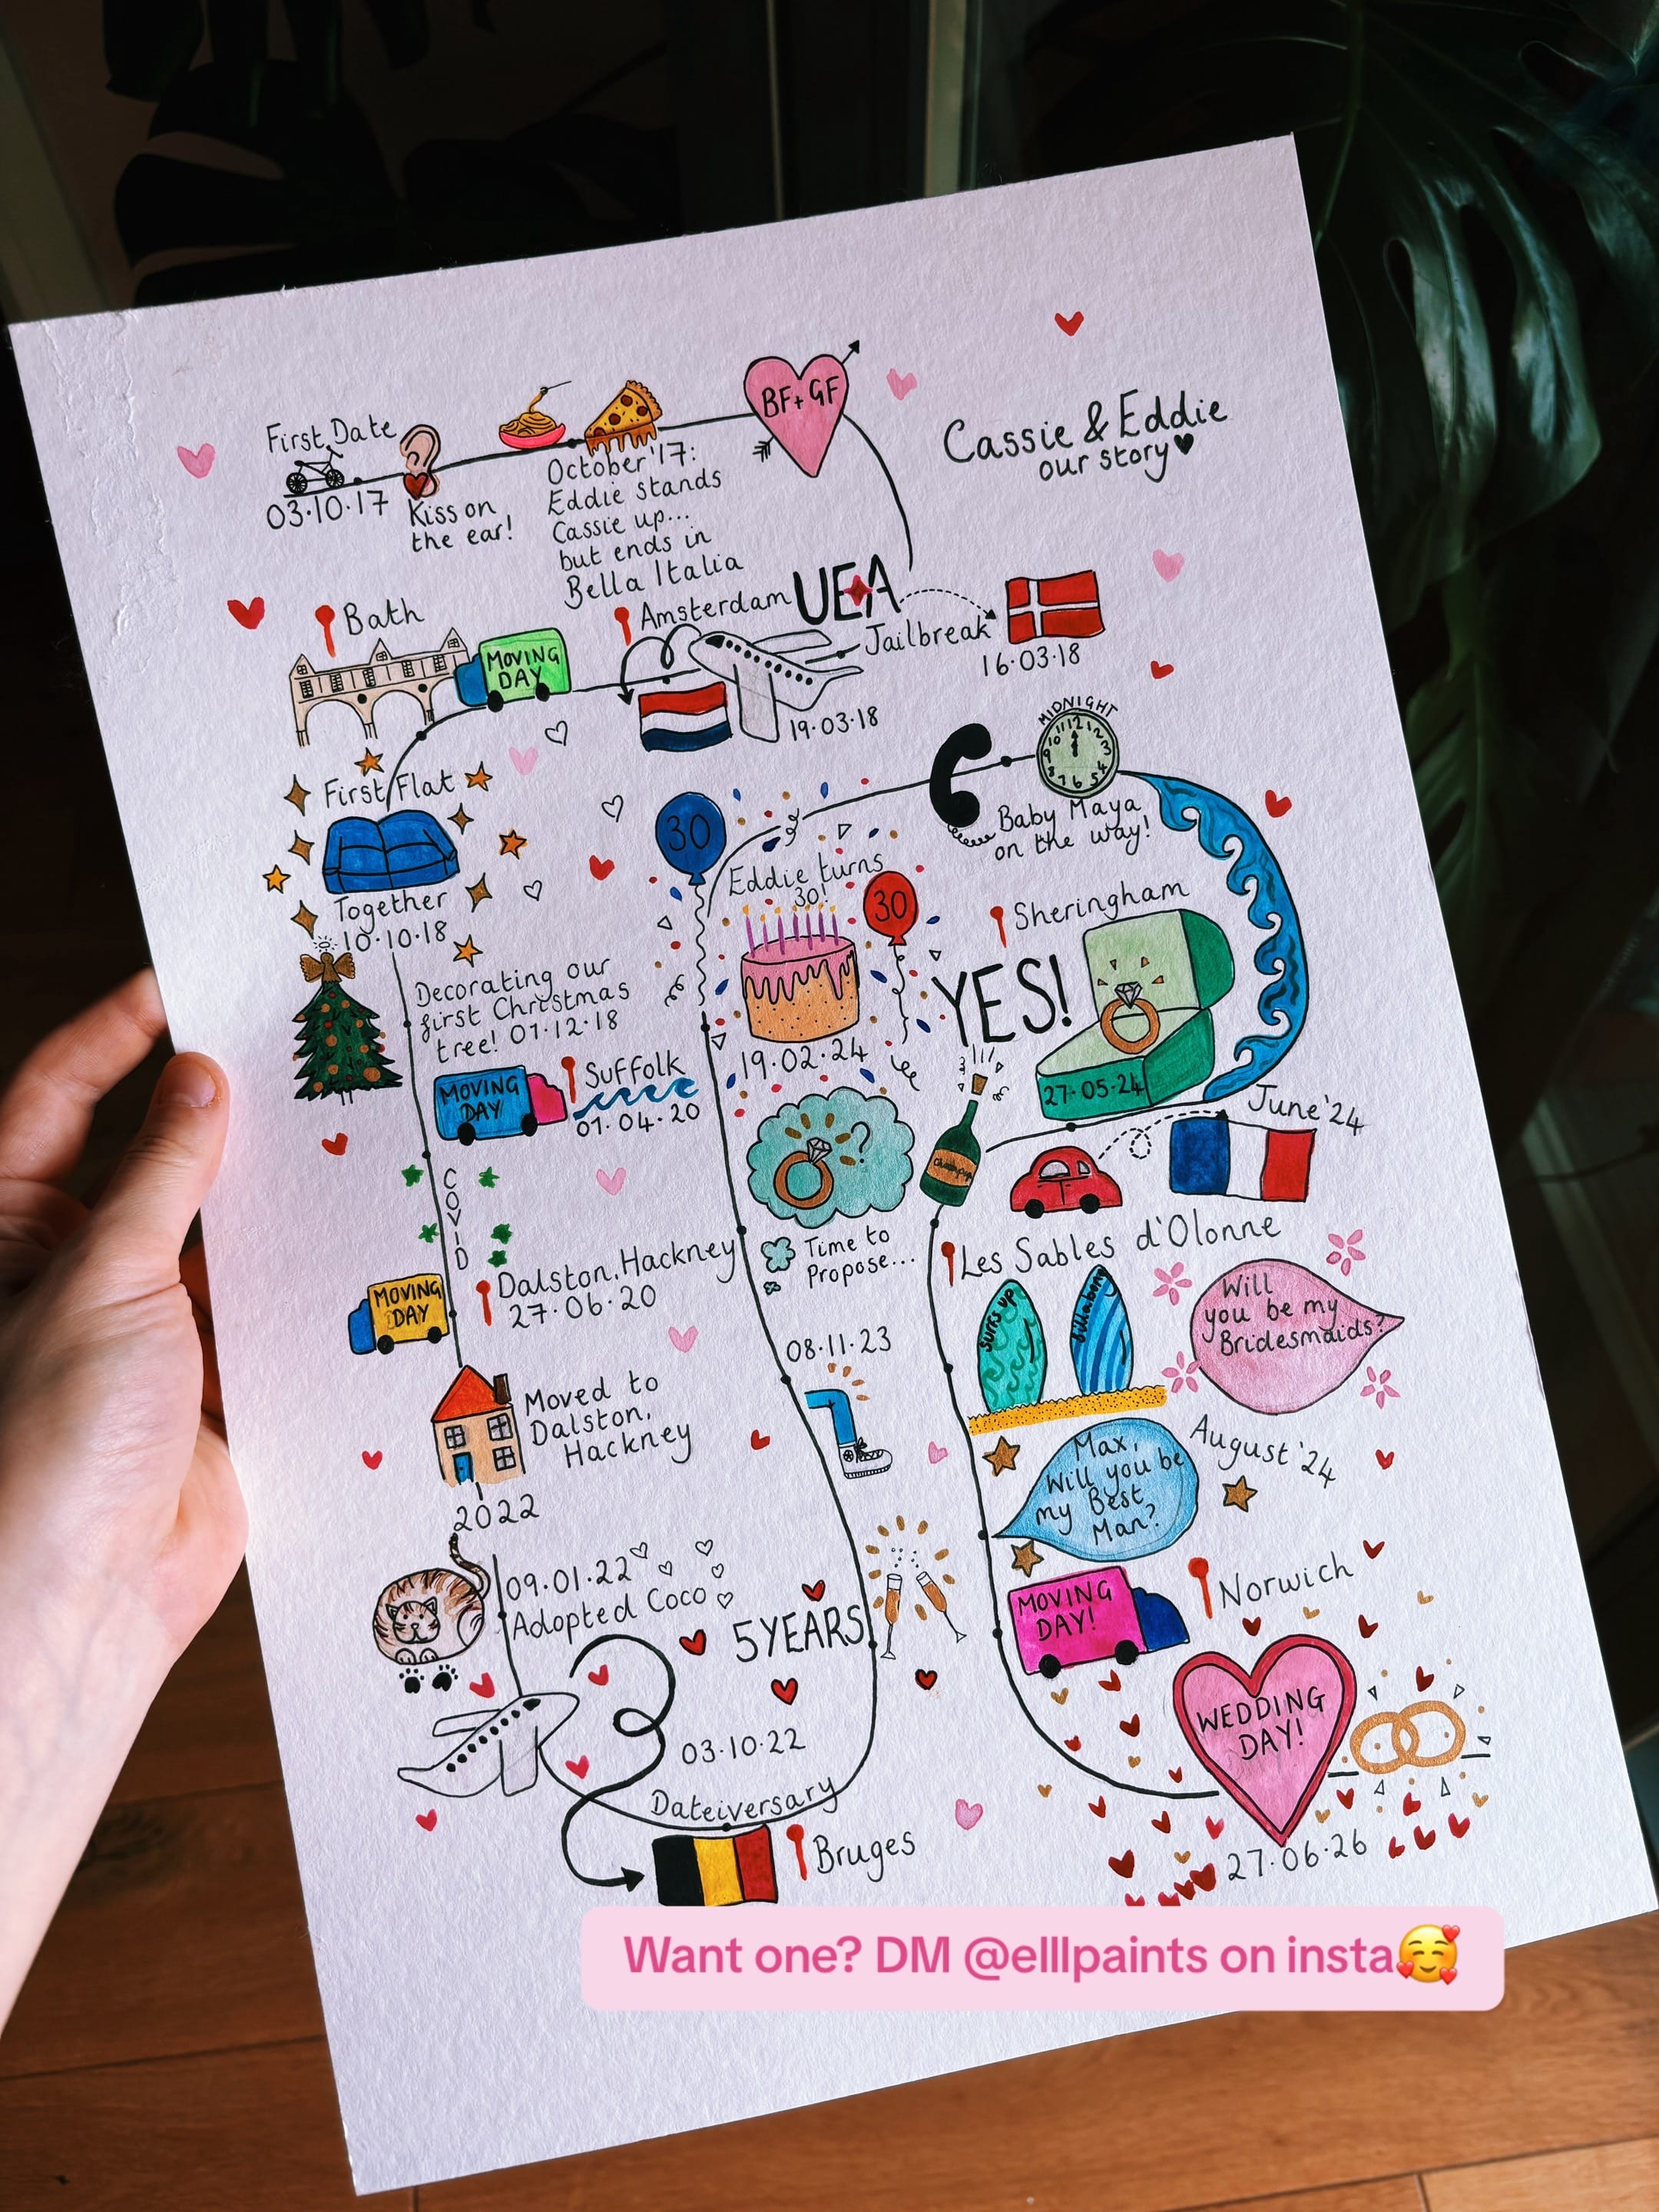 Cassie & Eddie
our story
First Date
03.10.17
Kiss on
the ear!
October '17:
Eddie stands
Cassie up...
but ends in
Bella Italia
BF + GF
UEA
Jailbreak
16.03.18
Amsterdam
19.03.18
MOVING
DAY
Bath
First Flat
Together
10.10.18
Decorating our
first Christmas
tree! 01.12.18
MOVING
DAY
Suffolk
01.04.20
COVID
MOVING
DAY
Dalston, Hackney
27.06.20
Moved to
Dalston,
Hackney
2022
09.01.22
Adopted Coco
03.10.22
Dateiversary
Bruges
5 YEARS
08.11.23
Time to
Propose...
?
19.02.24
Eddie turns
30!
30
30
MIDNIGHT
12
Baby Maya
on the way!
Sheringham
YES!
27.05.24
June '24
Les Sables d'Olonne
surfs up
billabong
Will
you be my
Bridesmaids?
August '24
Max,
Will you be
my Best
Man?
MOVING
DAY!
Norwich
WEDDING
DAY!
27.06.26
Want one? DM @elllpaints on insta🥰